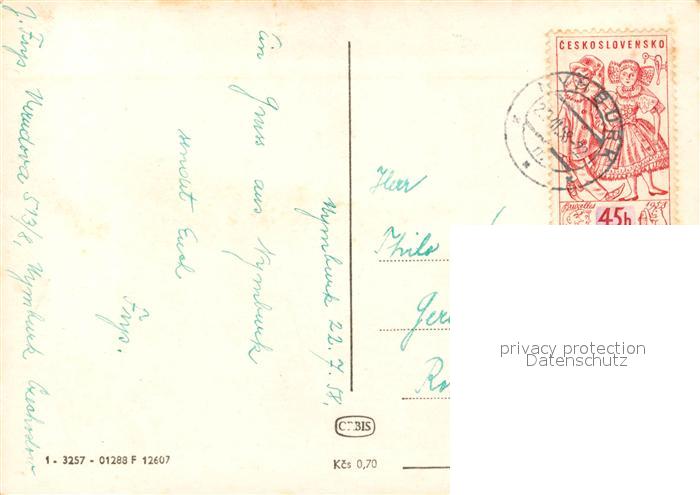 J. Frys, Nymburk Czechoslow
Ein Gruss aus Nymburk
sendet Euch
Frys.
Nymburk 22.7.58,
ČESKOSLOVENSKO
NYMBURK
Bruxelles 1958
45h
Herr
Thilo
Ger
Ro
privacy protection
Datenschutz
ORBIS
1 - 3257 - 01288 F 12607
Kčs 0,70